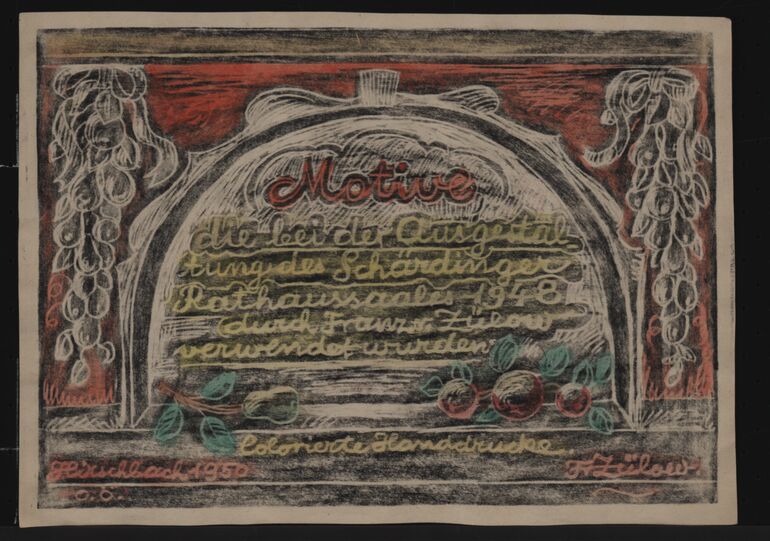 Motive
die bei der Ausgestal-
tung des Schärdinger
Rathaussaales 1948
durch Franz v. Zülow
verwendet wurden
Colorierte Handdrucke.
Hirschbach 1950
O.Ö.
F. Zülow